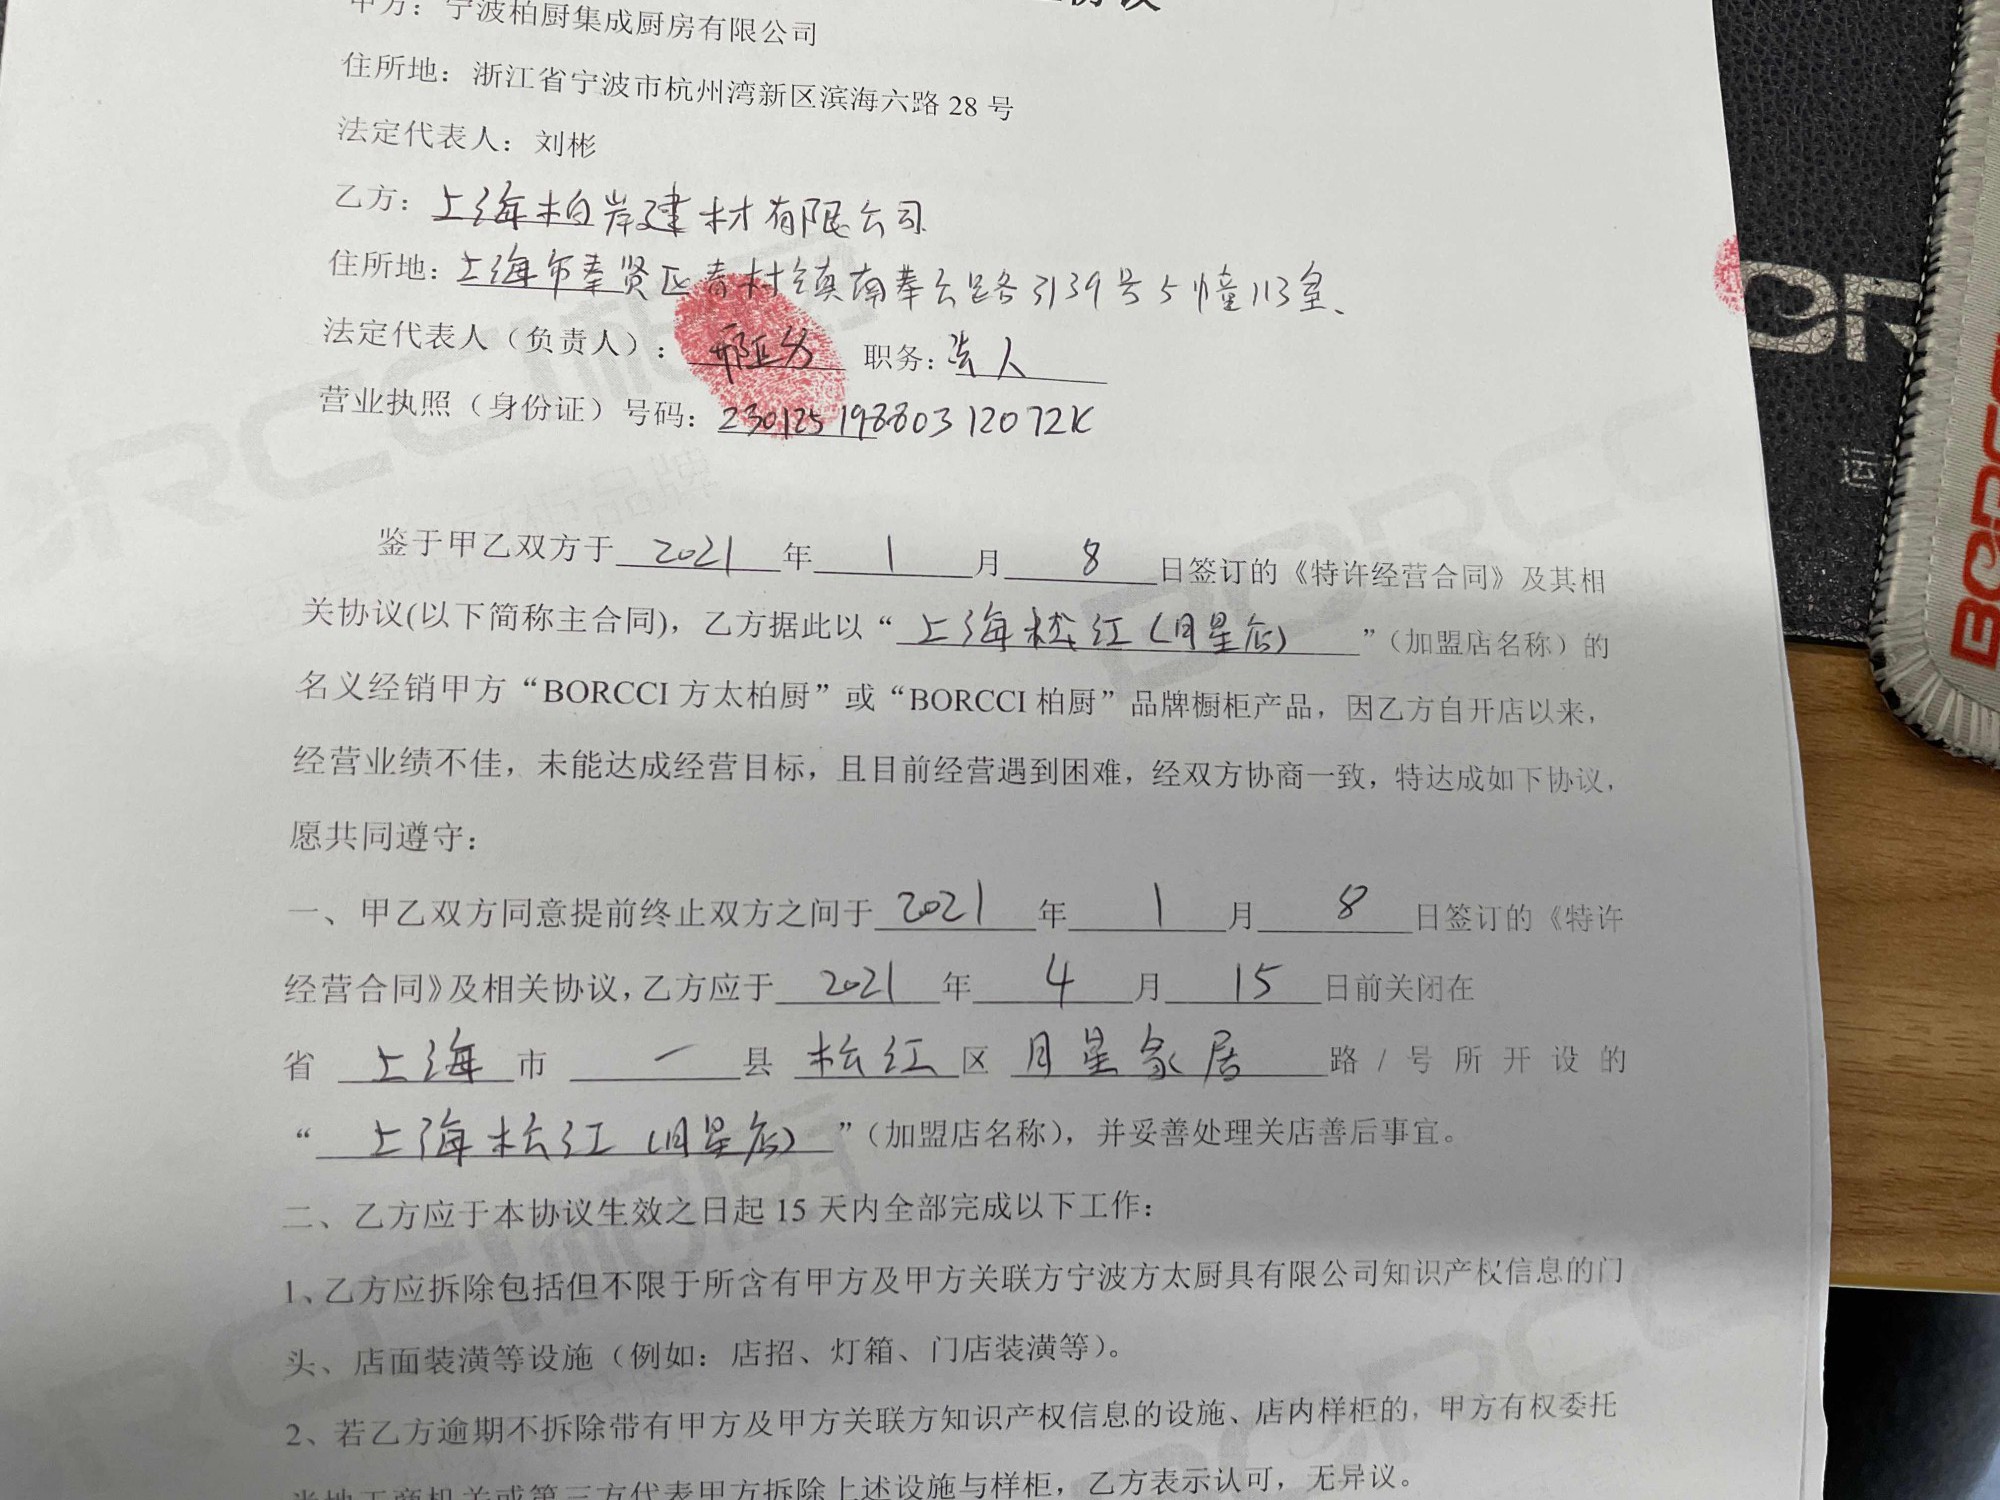 协议
甲方：宁波柏厨集成厨房有限公司
住所地：浙江省宁波市杭州湾新区滨海六路 28 号
法定代表人：刘彬
乙方：上海柏岸建材有限公司
住所地：上海市奉贤区青村镇南奉公路3139号5幢113室、
法定代表人（负责人）：邢亚 职务：法人
营业执照（身份证）号码：23012519880312072X
鉴于甲乙双方于 2021 年 1 月 8 日签订的《特许经营合同》及其相
关协议(以下简称主合同)，乙方据此以“上海松江(月星店)”（加盟店名称）的
名义经销甲方“BORCCI 方太柏厨”或“BORCCI 柏厨”品牌橱柜产品，因乙方自开店以来，
经营业绩不佳，未能达成经营目标，且目前经营遇到困难，经双方协商一致，特达成如下协议，
愿共同遵守：
一、甲乙双方同意提前终止双方之间于 2021 年 1 月 8 日签订的《特许
经营合同》及相关协议，乙方应于 2021 年 4 月 15 日前关闭在
省 上海 市 一 县 松江 区 月星家居 路 / 号所开设的
“上海松江(月星店)”（加盟店名称），并妥善处理关店善后事宜。
二、乙方应于本协议生效之日起 15 天内全部完成以下工作：
1、乙方应拆除包括但不限于所含有甲方及甲方关联方宁波方太厨具有限公司知识产权信息的门
头、店面装潢等设施（例如：店招、灯箱、门店装潢等）。
2、若乙方逾期不拆除带有甲方及甲方关联方知识产权信息的设施、店内样柜的，甲方有权委托
当地工商机关或第三方代表甲方拆除上述设施与样柜，乙方表示认可，无异议。
BORCCI
运